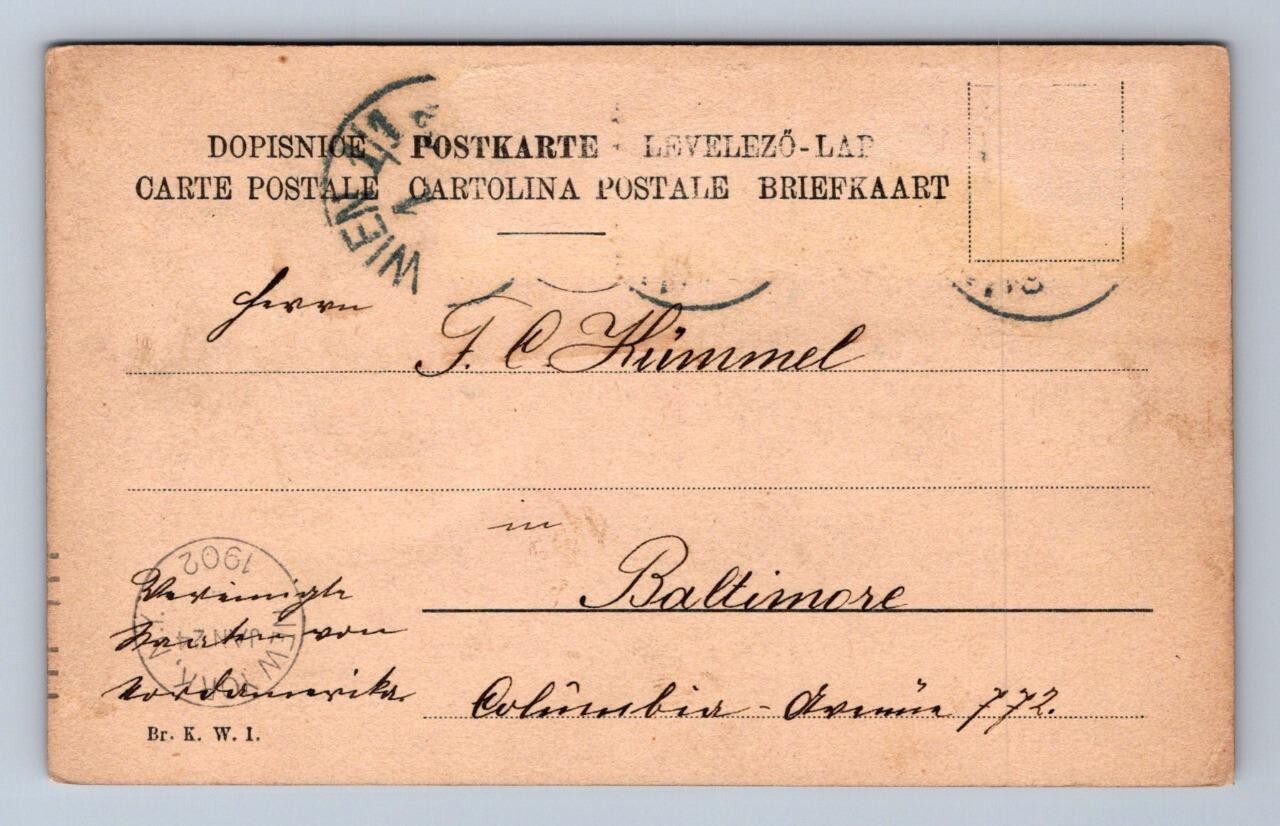 DOPISNICE POSTKARTE LEVELEZŐ-LAP
CARTE POSTALE CARTOLINA POSTALE BRIEFKAART
WIEN 1/1
Herrn
F. C. Kümmel
in
Baltimore
Columbia - Avenüe 772.
Vereinigte
Staaten von
Nordamerika
NEW YORK, N.Y.
JAN 24
1902
Br. K. W. I.